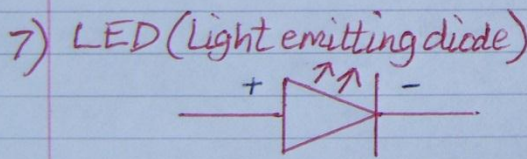 7) LED (Light emitting diode)
+ -